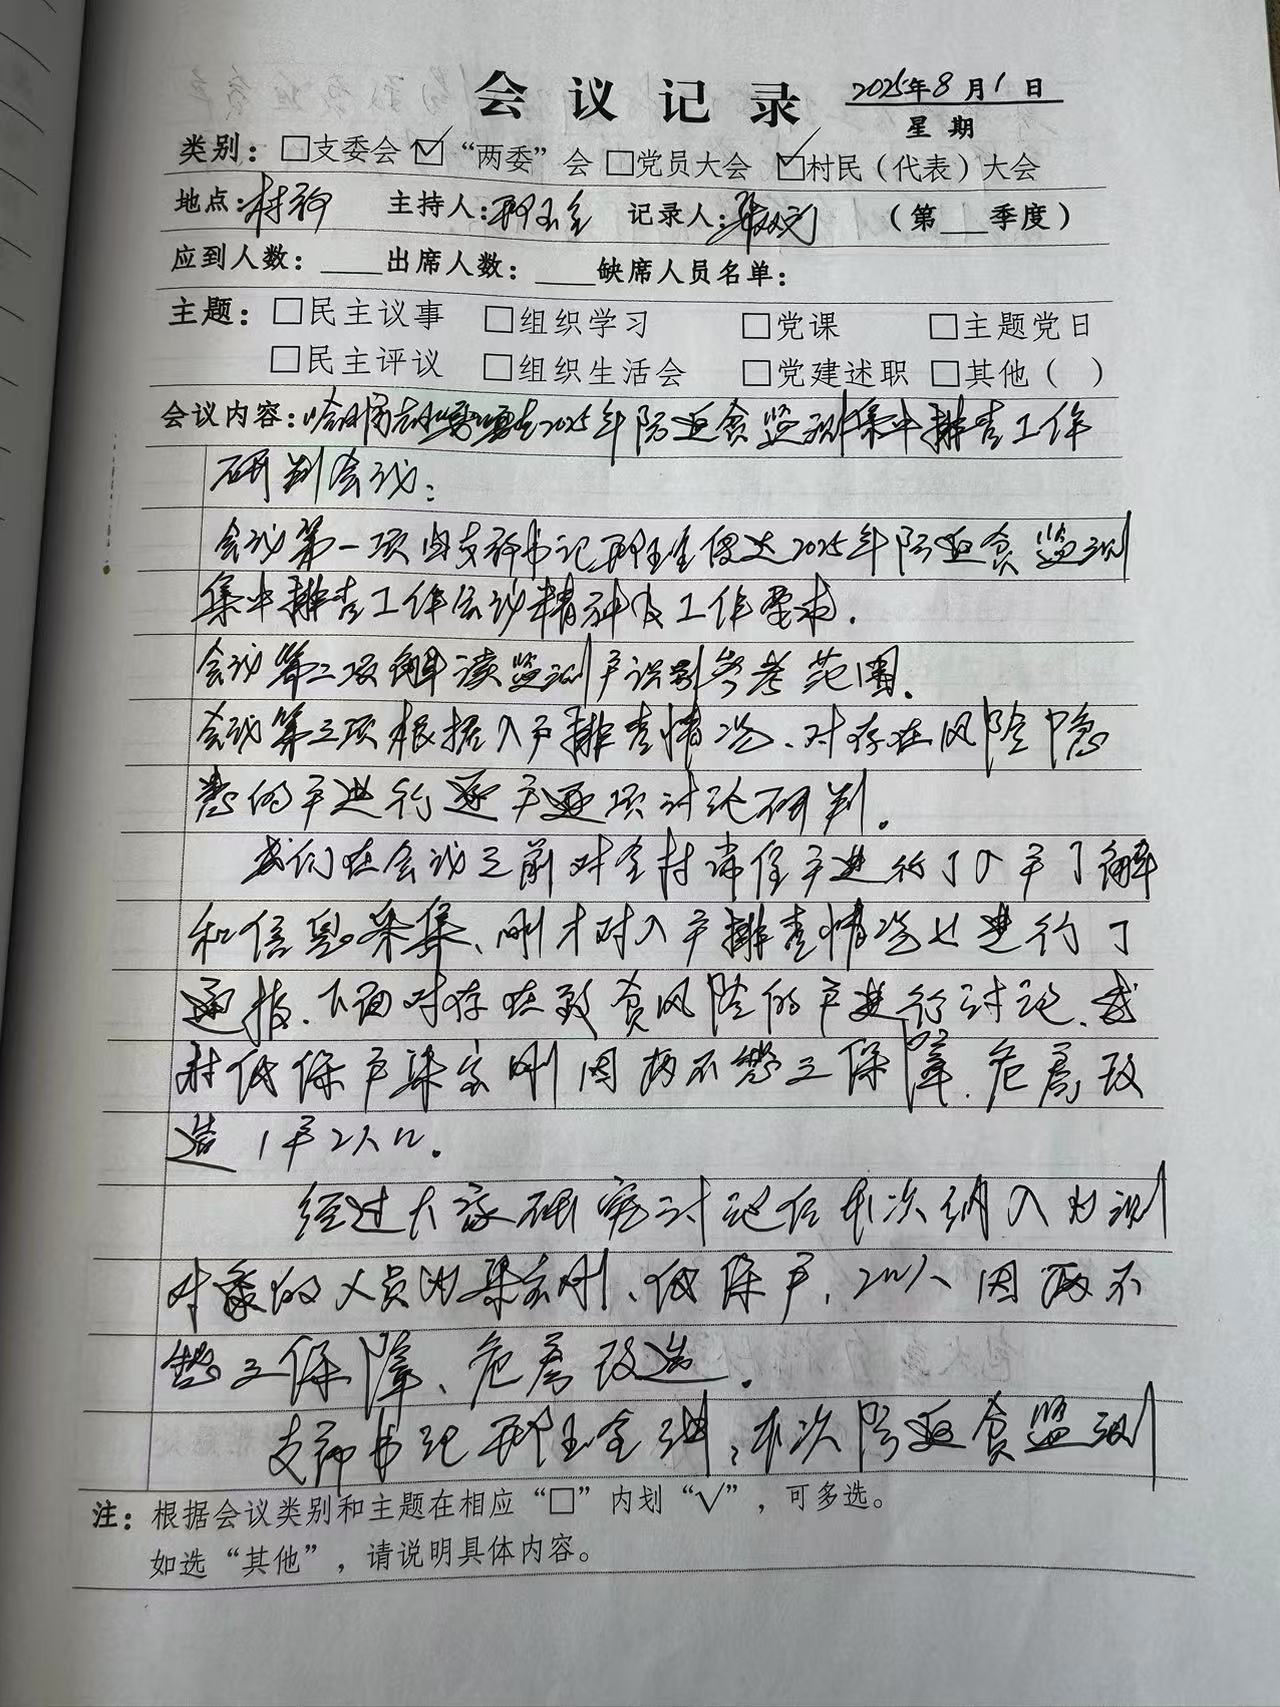 会议记录 2025年8月1日
星期
类别：□支委会 ☑“两委”会 □党员大会 ☑村民（代表）大会
地点：村部 主持人：邢玉全 记录人： （第___季度）
应到人数：____出席人数：____缺席人员名单：
主题：□民主议事 □组织学习 □党课 □主题党日
□民主评议 □组织生活会 □党建述职 □其他（ ）
会议内容：2025年防返贫监测集中排查工作
研判会议：
会议第一项由支部书记邢玉全传达2025年防返贫监测
集中排查工作会议精神及工作要求.
会议第二项解读监测户识别参考范围.
会议第三项根据入户排查情况、对存在风险隐
患的户进行逐户逐项讨论研判.
我们在会议之前对全村常住户进行了入户了解
和信息采集、刚才对入户排查情况也进行了
通报、下面对存在致贫风险的户进行讨论、我
村低保户梁宏刚因两不愁三保障、危房改
造1户2人口.
经过大家研究讨论后本次纳入监测
对象的人员为梁宏刚、低保户、2口人因两不
愁三保障、危房改造.
支部书记邢玉全讲：本次防返贫监测
注：根据会议类别和主题在相应“□”内划“√”，可多选。
如选“其他”，请说明具体内容。